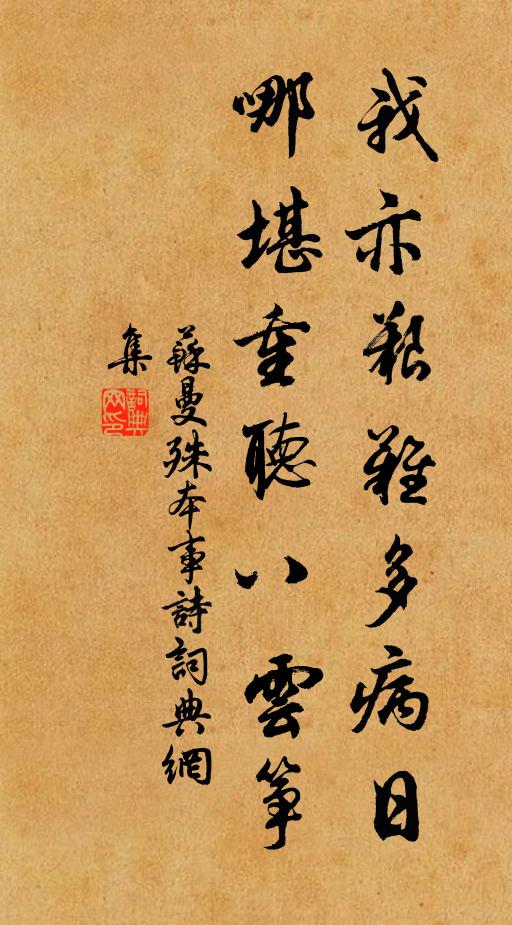 我亦艱難多病日
哪堪重聽八雲箏
蘇曼殊本事詩詞典網
集
詞典網印